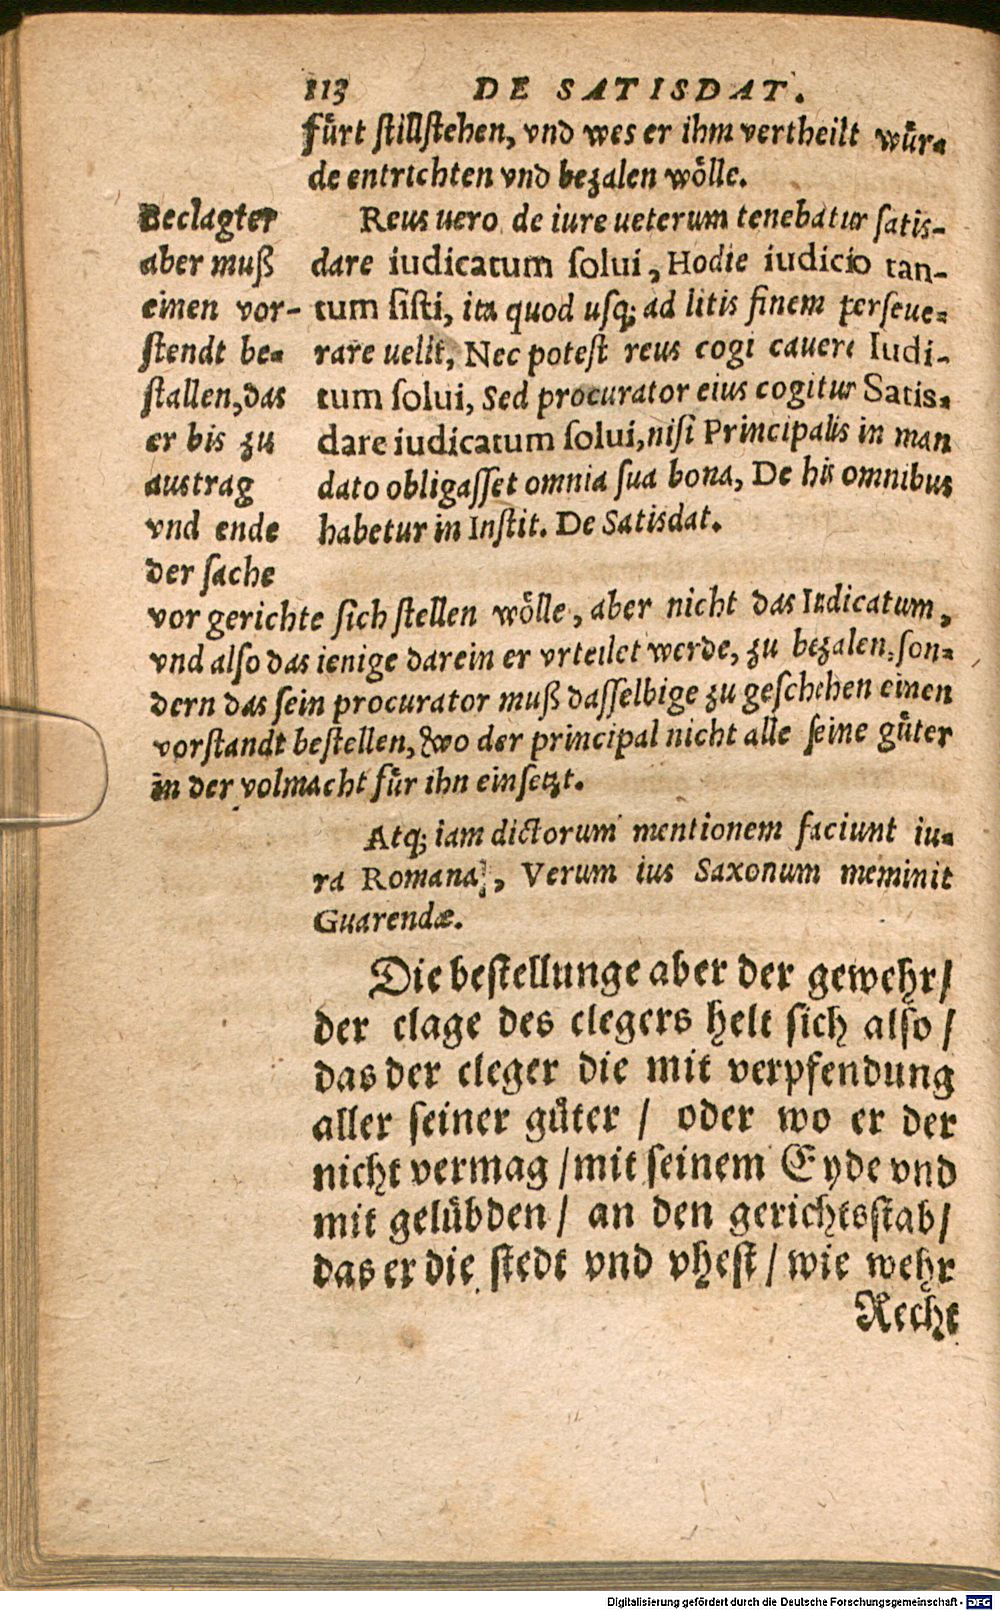 113 DE SATISDAT.
fürt stillstehen, vnd wes er ihm vertheilt wür-
de entrichten vnd bezalen wölle.
Beclagter
aber muß
einen vor-
stendt be-
stallen, das
er bis zu
austrag
vnd ende
der sache
Reus uero de iure ueterum tenebatur satis-
dare iudicatum solui, Hodie iudicio tan-
tum sisti, ita quod usq; ad litis finem perseue-
rare uelit, Nec potest reus cogi cauere Iudi-
tum solui, Sed procurator eius cogitur Satis-
dare iudicatum solui, nisi Principalis in man
dato obligasset omnia sua bona, De his omnibus
habetur in Instit. De Satisdat.
vor gerichte sich stellen wölle, aber nicht das Iudicatum,
vnd also das ienige darein er vrteilet werde, zu bezalen, son-
dern das sein procurator muß dasselbige zu geschehen einen
vorstandt bestellen, wo der principal nicht alle seine güter
in der volmacht für ihn einsetzt.
Atq; iam dictorum mentionem faciunt iu-
ra Romana, Verum ius Saxonum meminit
Guarendæ.
Die bestellunge aber der gewehr/
der clage des clegers helt sich also/
das der cleger die mit verpfendung
aller seiner güter / oder wo er der
nicht vermag / mit seinem Eyde vnd
mit gelübden / an den gerichtsstab/
das er die stedt vnd vhest / wie wehr
Recht
Digitalisierung gefördert durch die Deutsche Forschungsgemeinschaft - DFG